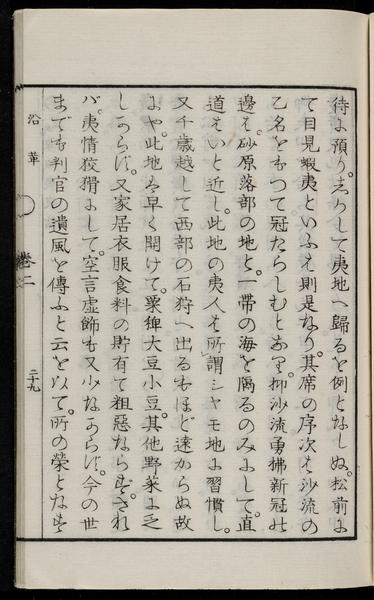 待に預り。而して夷地へ歸るを例となしぬ。松前に
て目見蝦夷といふは則是なり。其席の序次は沙流の
乙名をもつて冠たらしむとあり。抑沙流勇拂新冠の
邊は。砂原落部の地と。一帶の海を隔るのみにして。直
道はいと近し。此地の夷人は所謂シャモ地に習慣し。
又千歳越して西部の石狩へ出るもほど遠からぬ故
にや。此地は早く開けて。粟稗大豆小豆。其他野菜に乏
しからず。又家居衣服食料の貯有て粗惡ならず。され
バ。夷情狡猾にして。空言虚飾も又少なからず。今の世
までも判官の遺風を傳ふと云を以て。所の榮となす
沿革
卷二
二十九